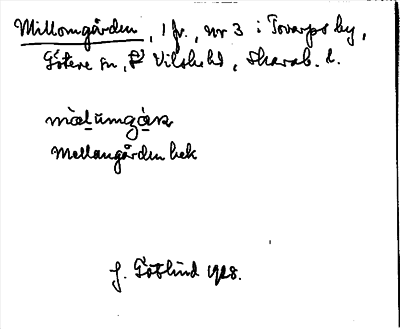 Millomgården, 1 fr., nr 3 i Torarps by,
Götene sn, Vilske hd, Skarab. l.
mìalumgàɳ
Mellangården bek
J. Götlind 1928.